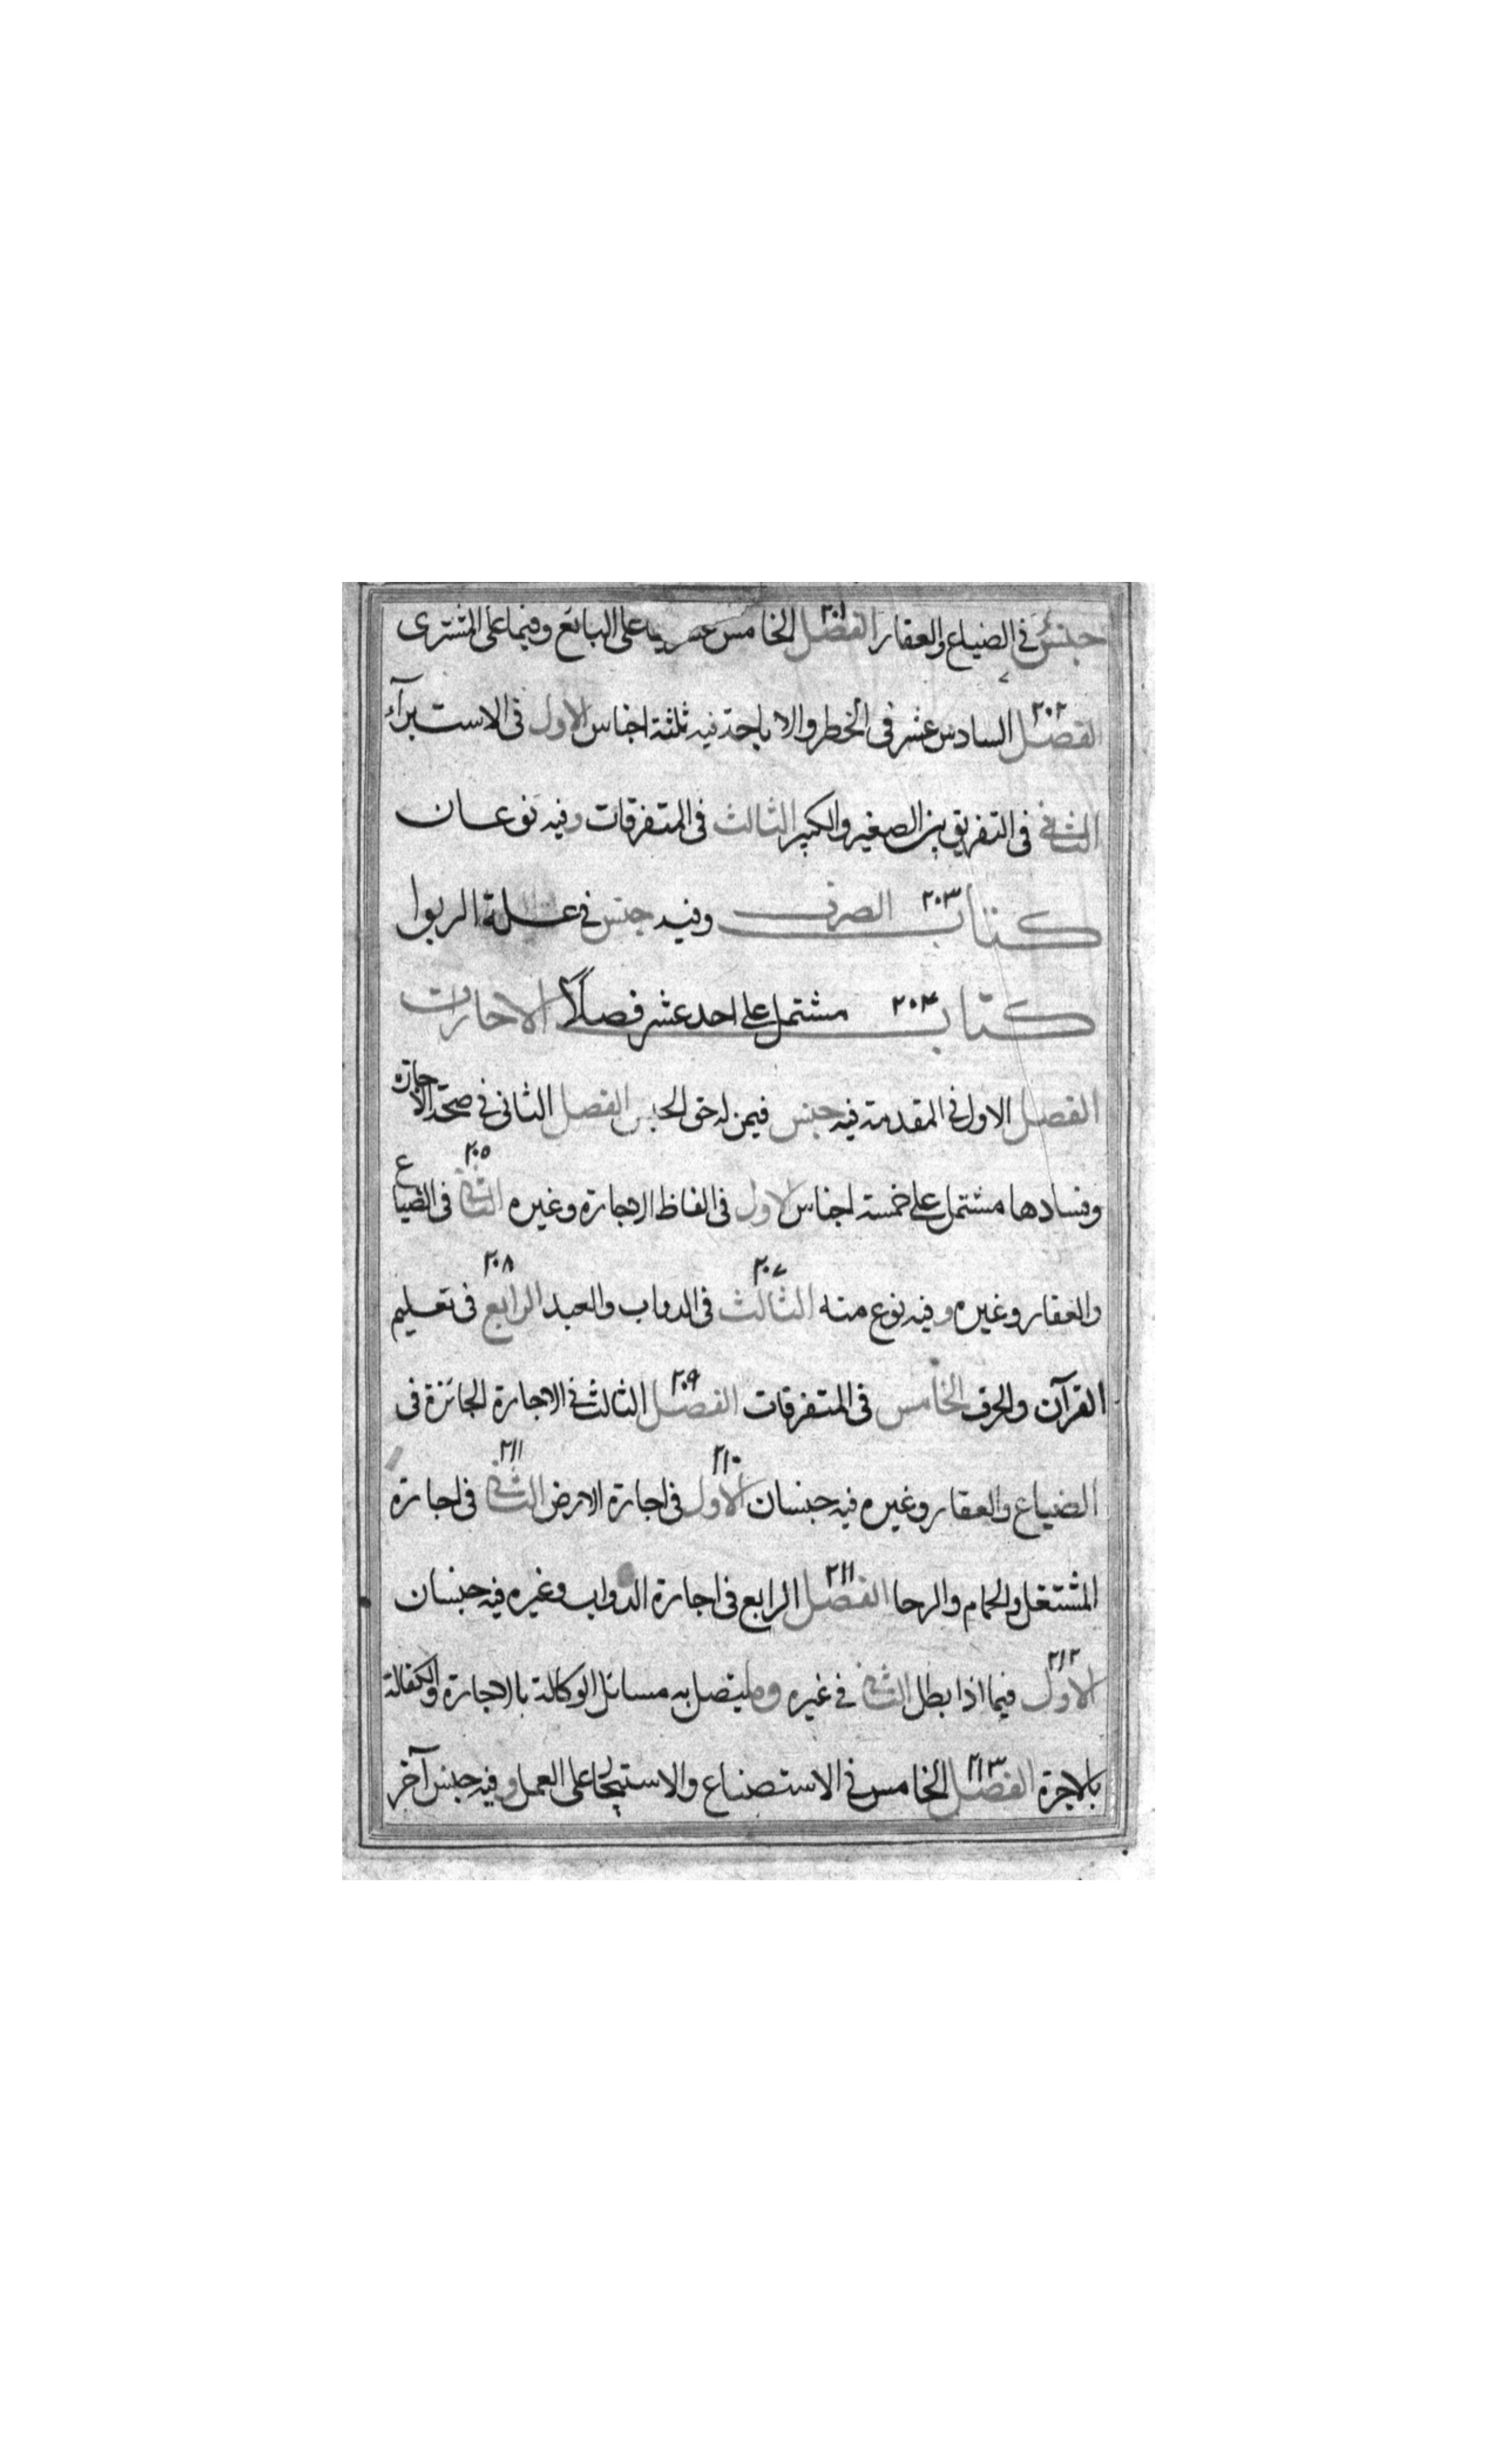 جنس في الضياع والعقار الفصل ٢٠١ الخامس عشر فيما على البائع وفيما على المشتري
الفصل ٢٠٢ السادس عشر في الخطر والاباحة فيه ثلثة اجناس الاول في الاستبرآء
الثاني في التفريق بين الصغير والكبير الثالث في المتفرقات وفيه نوعان
كتاب ٢٠٣ الصرف وفيه جنس في علة الربوا
كتاب ٢٠٤ الاجارات مشتمل على احد عشر فصلاً
الفصل الاول في المقدمة فيه جنس فيمن له حق الحبس الفصل الثاني في صحة الاجارة
وفسادها مشتمل على خمسة اجناس الاول في الفاظ الاجارة وغيره الثاني ٢٠٥ في الضياع
والعقار وغيره وفيه نوع منه الثالث ٢٠٧ في الدواب والعبد الرابع ٢٠٨ في تعليم
القرآن والحرف الخامس في المتفرقات الفصل ٢٠٩ الثالث في الاجارة الجائزة في
الضياع والعقار وغيره فيه جنسان الاول ٢١٠ في اجارة الارض الثاني ٢١١ في اجارة
المشتغل والحمام والرحا الفصل ٢١١ الرابع في اجارة الدواب وغيره فيه جنسان
الاول ٢١٢ فيما اذا بطل الثاني في غيره وما يتصل به مسائل الوكالة بالاجارة والكفالة
بالاجرة الفصل ٢١٣ الخامس في الاستصناع والاستيجار على العمل وفيه جنس آخر